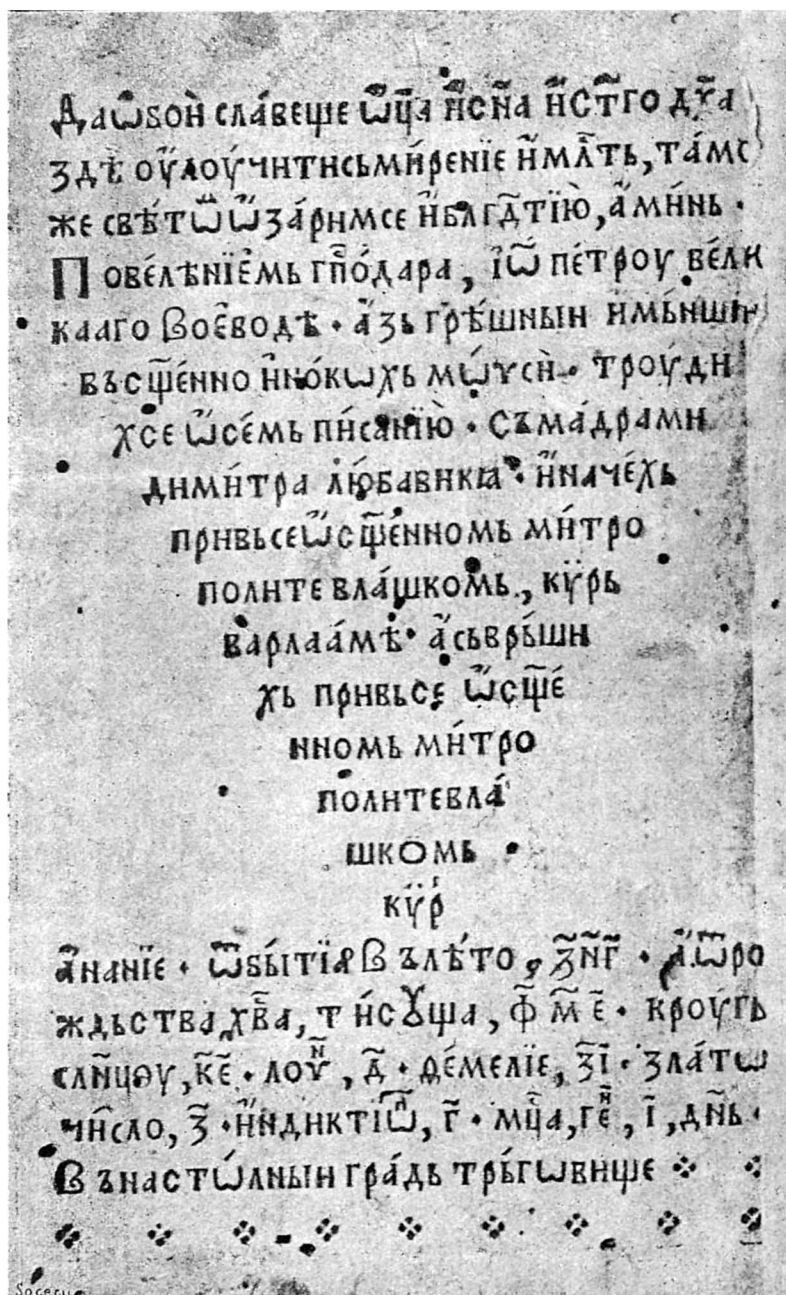 Да ѿбои̇̀ сла́веще ѿц҃а и҆сн҃а и҆ст҃го дх҃а
зде ѹ҆лоу́читисьми́ренїе и҆мл҃ть, та́мо
же свѣ́тѡⷨ ѡ҆за́римсе и҆блгⷣтїю̀, а҆ми́нь ·
Повеле́нїемь гпⷭ҇о́дара, іѡ҃ пе́троу ве́ли
кааго вое҆водѣ · а҆зь грѣ́шныи и мь́нши
въсщ҃е́нно и҆но́кѡхь мѡѷси̇̀ · троу́ди
хсе ѡ҆се́мь пи́санїю̀ · съма́драми
дими́тра лю́бавикꙗ · и҆наче́хь
привьсеѡ҆сщ҃е́нномь ми́тро
политевла́шкомь, кѵ̈рь
варлаа́мѣ · а҆сьврь́ши
хь привьсе ѡ҆сщ҃е́
нномь ми́тро
политевла́
шкомь
кѵ̈р
а҆нанїе · ѿбы́тїа въ лѣ́то ҂з҃н҃г҃ · а҆.ѿро
ждьства хв҃а, т и҆сꙋща, ф҃ м҃ е҃ · кроугь
слн҃цоу, к҃е҃ · лоуⷩ҇, д҃ · ѳе́меліе, з҃і҃ · зла́тѡ
чи́сло, з҃ · и҆ндиктіѡⷩ҇, г҃ · мц҃а, геⷩ҇, і҃, дн҃ь ·
въ настѡ́лныи гра́дь трь́гѡвище
Socecu